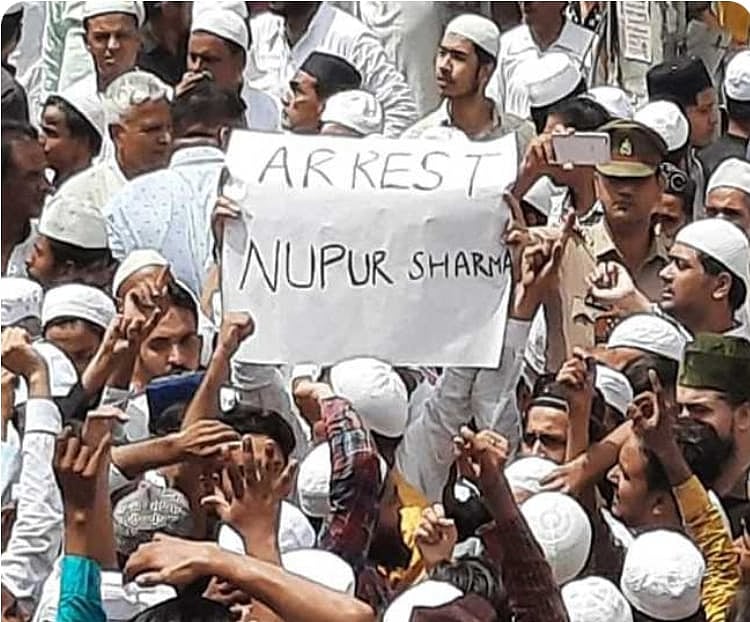 ARREST
NUPUR SHARMA